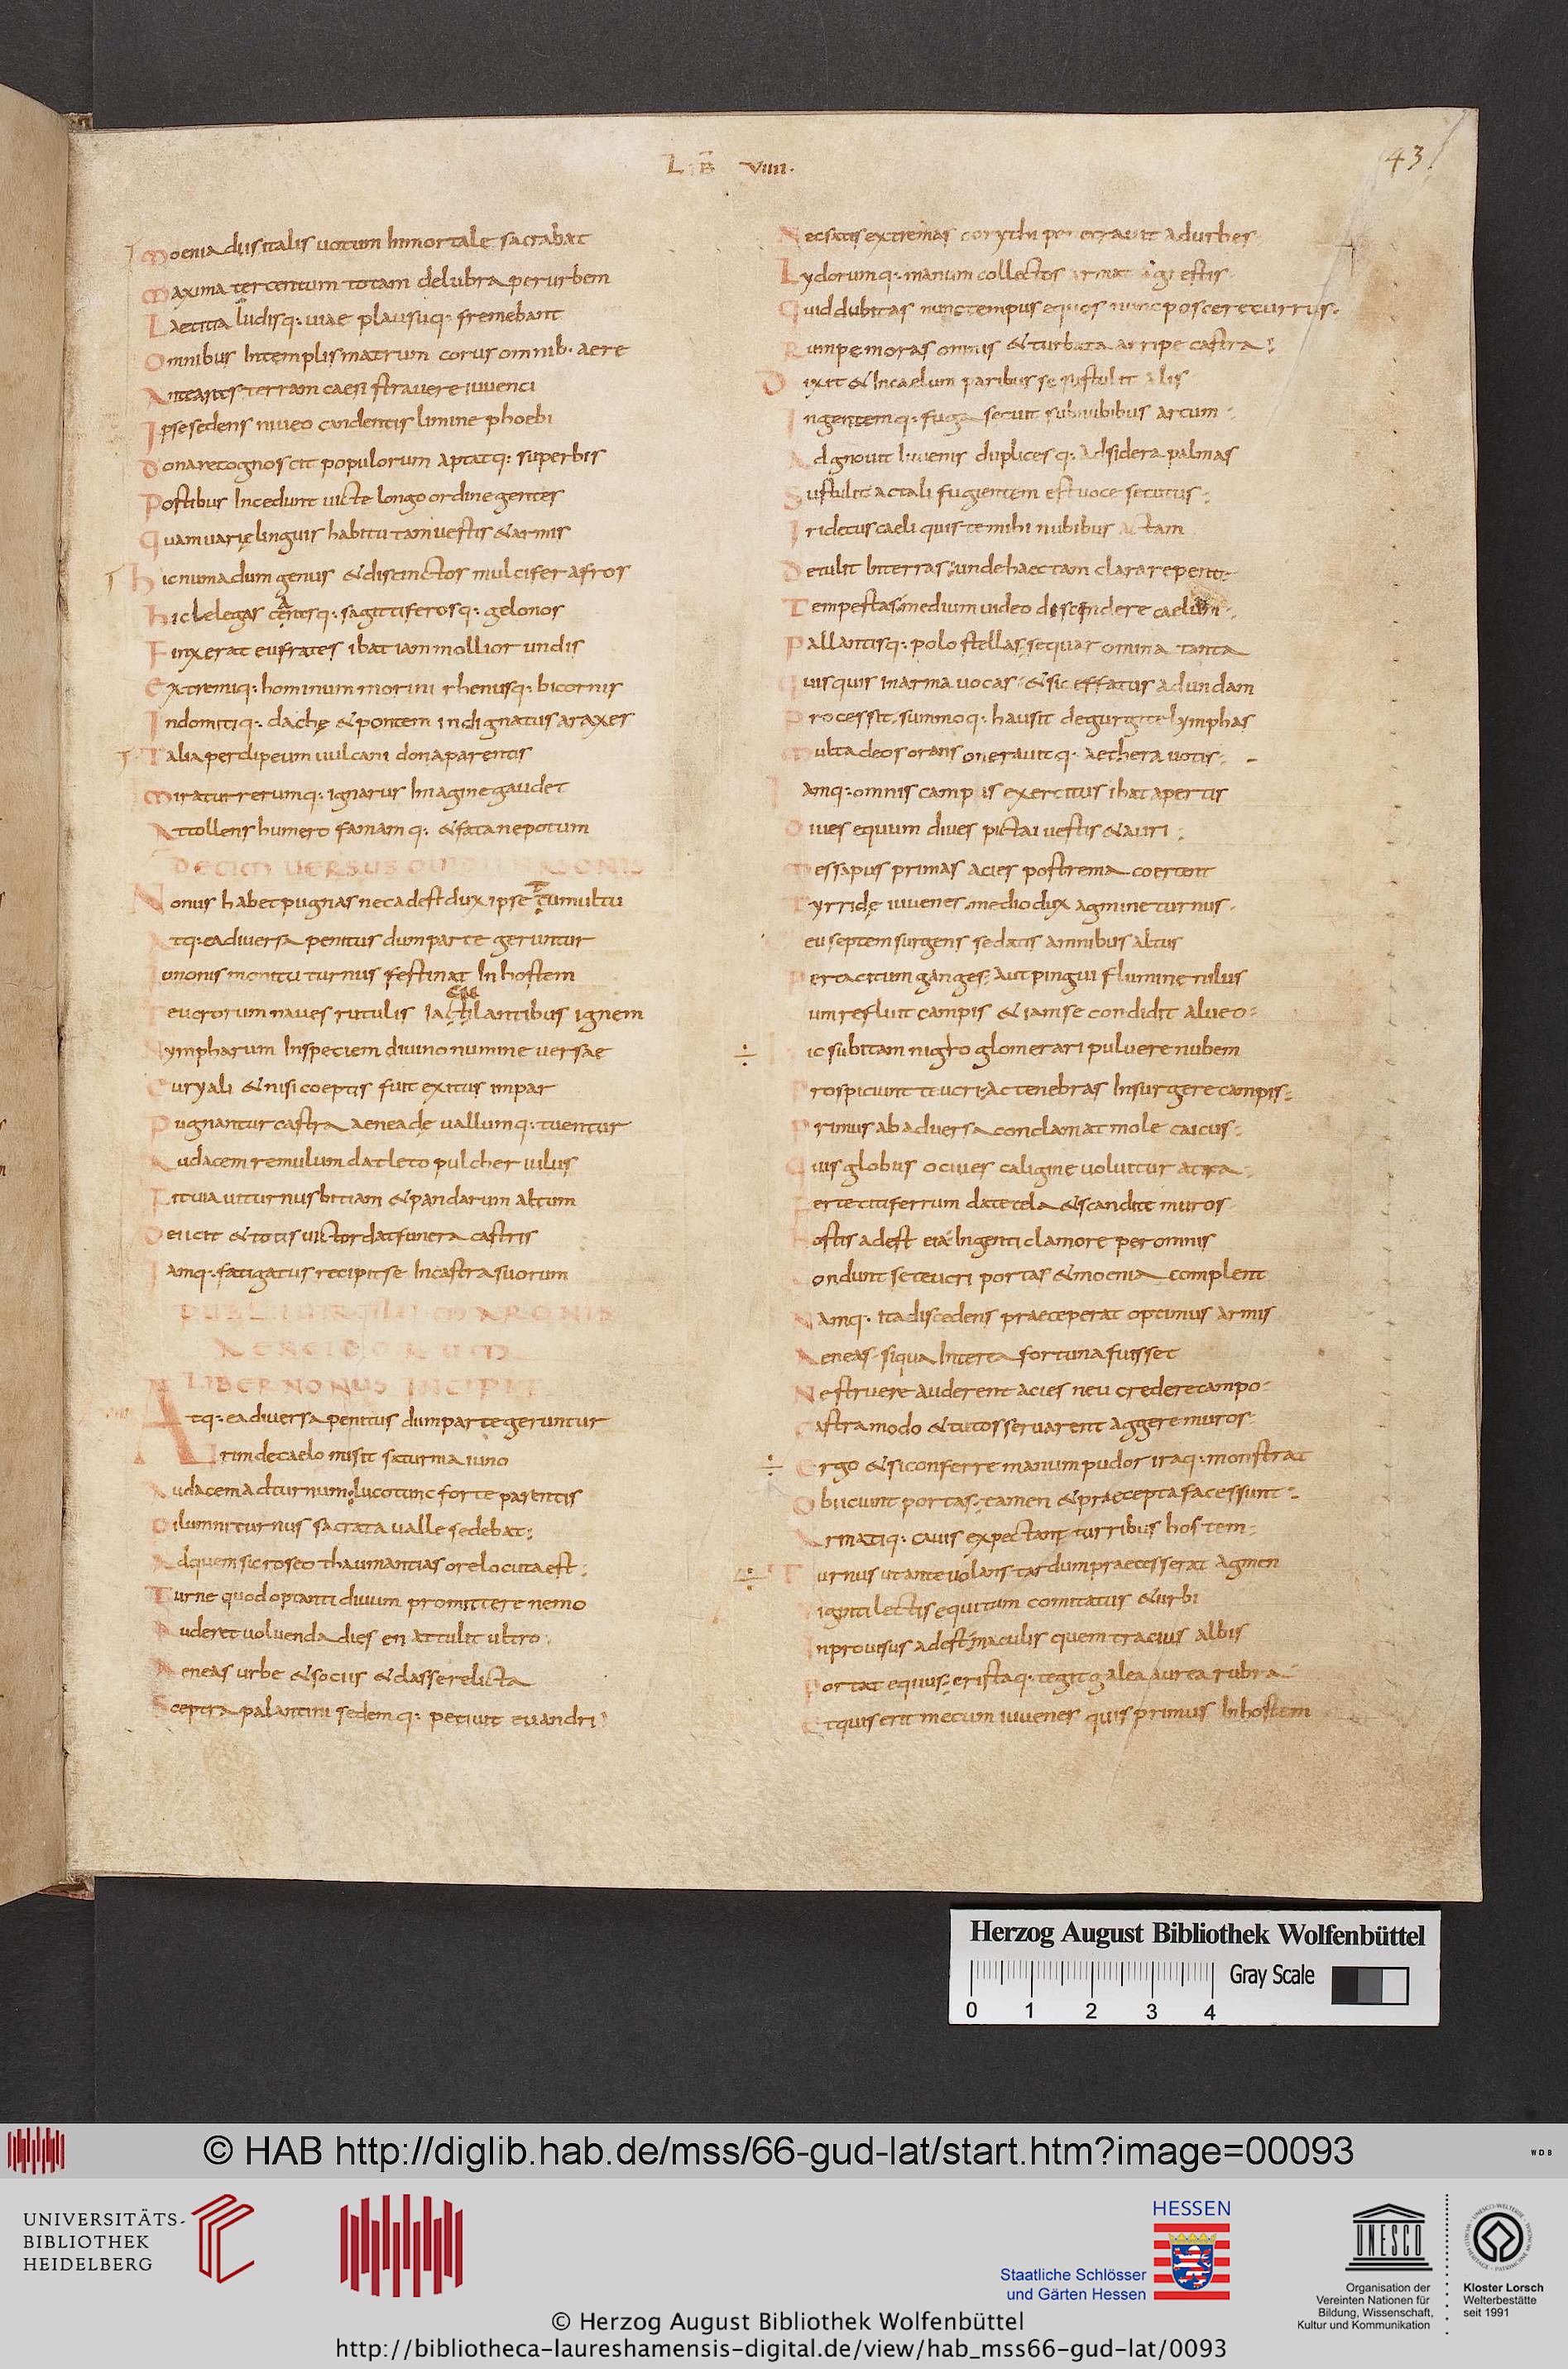 LIB VIIII.
43
Moenia diis italis uotum Inmortale sacrabat
Maxima tercentum totam delubra per urbem
Laetitia ludisq: uiae plausuq: fremebant
Omnibus Intemplis matrum corus omnib· aere
Ante aras terram caesi strauere iuuenci
Ipse sedens niueo candentis limine phoebi
Dona recognoscit populorum aptatq: superbis
Postibus Incedunt uictę longo ordine gentes
Quam uarię linguis habitu tam uestis & armis
hic numadum genus & distinctos mulcifer afros
hic lelegas carasq: sagittiferosq: gelonos
Finxerat eufrates ibat iam mollior undis
Extremiq: hominum morini rhenusq: bicornis
Indomitiq: dachę & pontem indignatus araxes
Talia per clipeum uulcani dona parentis
Miratur rerumq: ignarus Imagine gaudet
Attollens humero famamq: & fata nepotum
DECIM VERSUS OUIDII NASONIS
Nonus habet pugnas nec adest dux ipse tumultu
Atq: ea diuersa penitus dum parte geruntur
Iunonis monitu turnus festinat Inhostem
Teucrorum naues rutulis Iaculantibus ignem
Nympharum Inspeciem diuino numine uersae
Euryali & nisi coeptis fuit exitus impar
Pugnantur castra aeneadę uallumq: tuentur
Audacem remulum dat leto pulcher iulus
Fit uia uit turnus bitiam & pandarum altum
Deiicit & totis uictor dat funera castris
Iamq: fatigatus recipit se Incastra suorum
PUBLII UIRGILII MARONIS
AENEIDORUM
LIBER NONUS INCIPIT
Atq: ea diuersa penitus dum parte geruntur
Irim de caelo misit saturnia iuno
Audacem ad turnum: luco tunc forte parentis
Pilumni turnus sacrata ualle sedebat:
Ad quem sic roseo thaumantias ore locuta est:
Turne quod optanti diuum promittere nemo
Auderet uoluenda dies en attulit ultro
Aeneas urbe & sociis & classe relicta
Sceptra palantini sedemq: petiuit euandri
Nec satis extremas corythi penetrauit ad urbes
Lydorumq: manum collectos armat agrestis
Quid dubitas nunc tempus equos nunc poscere currus:
Rumpe moras omnis & turbata arripe castra:
Dixit & Incaelum paribus se sustulit alis
Ingentemq: fuga secuit sub nubibus arcum:
Adgnouit Iuuenis duplicesq: ad sidera palmas
Sustulit ac tali fugientem est uoce secutus:
Iri decus caeli quis te mihi nubibus actam
Detulit Interras: unde haec tam clara repente
Tempestas: medium uideo discindere caelum:
Pallantisq: polo stellas: sequar omina tanta
Quisquis Inarma uocas: & sic effatus ad undam
Processit: summoq: hausit de gurgite lymphas
Multa deos orans onerauitq: aethera uotis:
Iamq: omnis campis exercitus ibat apertis
Diues equum diues pictai uestis & auri:
Messapus primas acies postrema coercent
Tyrridę iuuenes: medio dux agmine turnus
eu septem surgens sedatis amnibus altus
Per tacitum ganges: aut pingui flumine nilus
um refluit campis & iam se condidit alueo:
ic subitam nigro glomerari puluere nubem
Prospiciunt teucri: ac tenebras Insurgere campis:
Primus ab aduersa conclamat mole caicus:
Quis globus o ciues caligine uoluitur atra
Ferte citi ferrum date tela & scandite muros
Hostis adest eia: Ingenti clamore per omnis
ondunt se teucri portas & moenia complent
Namq: ita discedens praeceperat optimus armis
Aeneas siqua Interea fortuna fuisset
Ne struere auderent acies neu credere campo
Castra modo & tutos seruarent aggere muros
Ergo & si conferre manum pudor iraq: monstrat
Obiciunt portas: tamen & praecepta facessunt:
Armatiq: cauis expectant turribus hostem:
Turnus ut ante uolans tardum praecesserat agmen
iginti lectis equitum comitatus & urbi
Inprouisus adest: maculis quem tracius albis
Portat equus: cristaq: tegit galea aurea rubra
Etquis erit mecum iuuenes quis primus Inhostem
Herzog August Bibliothek Wolfenbüttel
0 1 2 3 4 Gray Scale
© HAB http://diglib.hab.de/mss/66-gud-lat/start.htm?image=00093
WDB
UNIVERSITÄTS-
BIBLIOTHEK
HEIDELBERG
HESSEN
Staatliche Schlösser
und Gärten Hessen
UNESCO
Organisation der
Vereinten Nationen für
Bildung, Wissenschaft,
Kultur und Kommunikation
Kloster Lorsch
Welterbestätte
seit 1991
© Herzog August Bibliothek Wolfenbüttel
http://bibliotheca-laureshamensis-digital.de/view/hab_mss66-gud-lat/0093